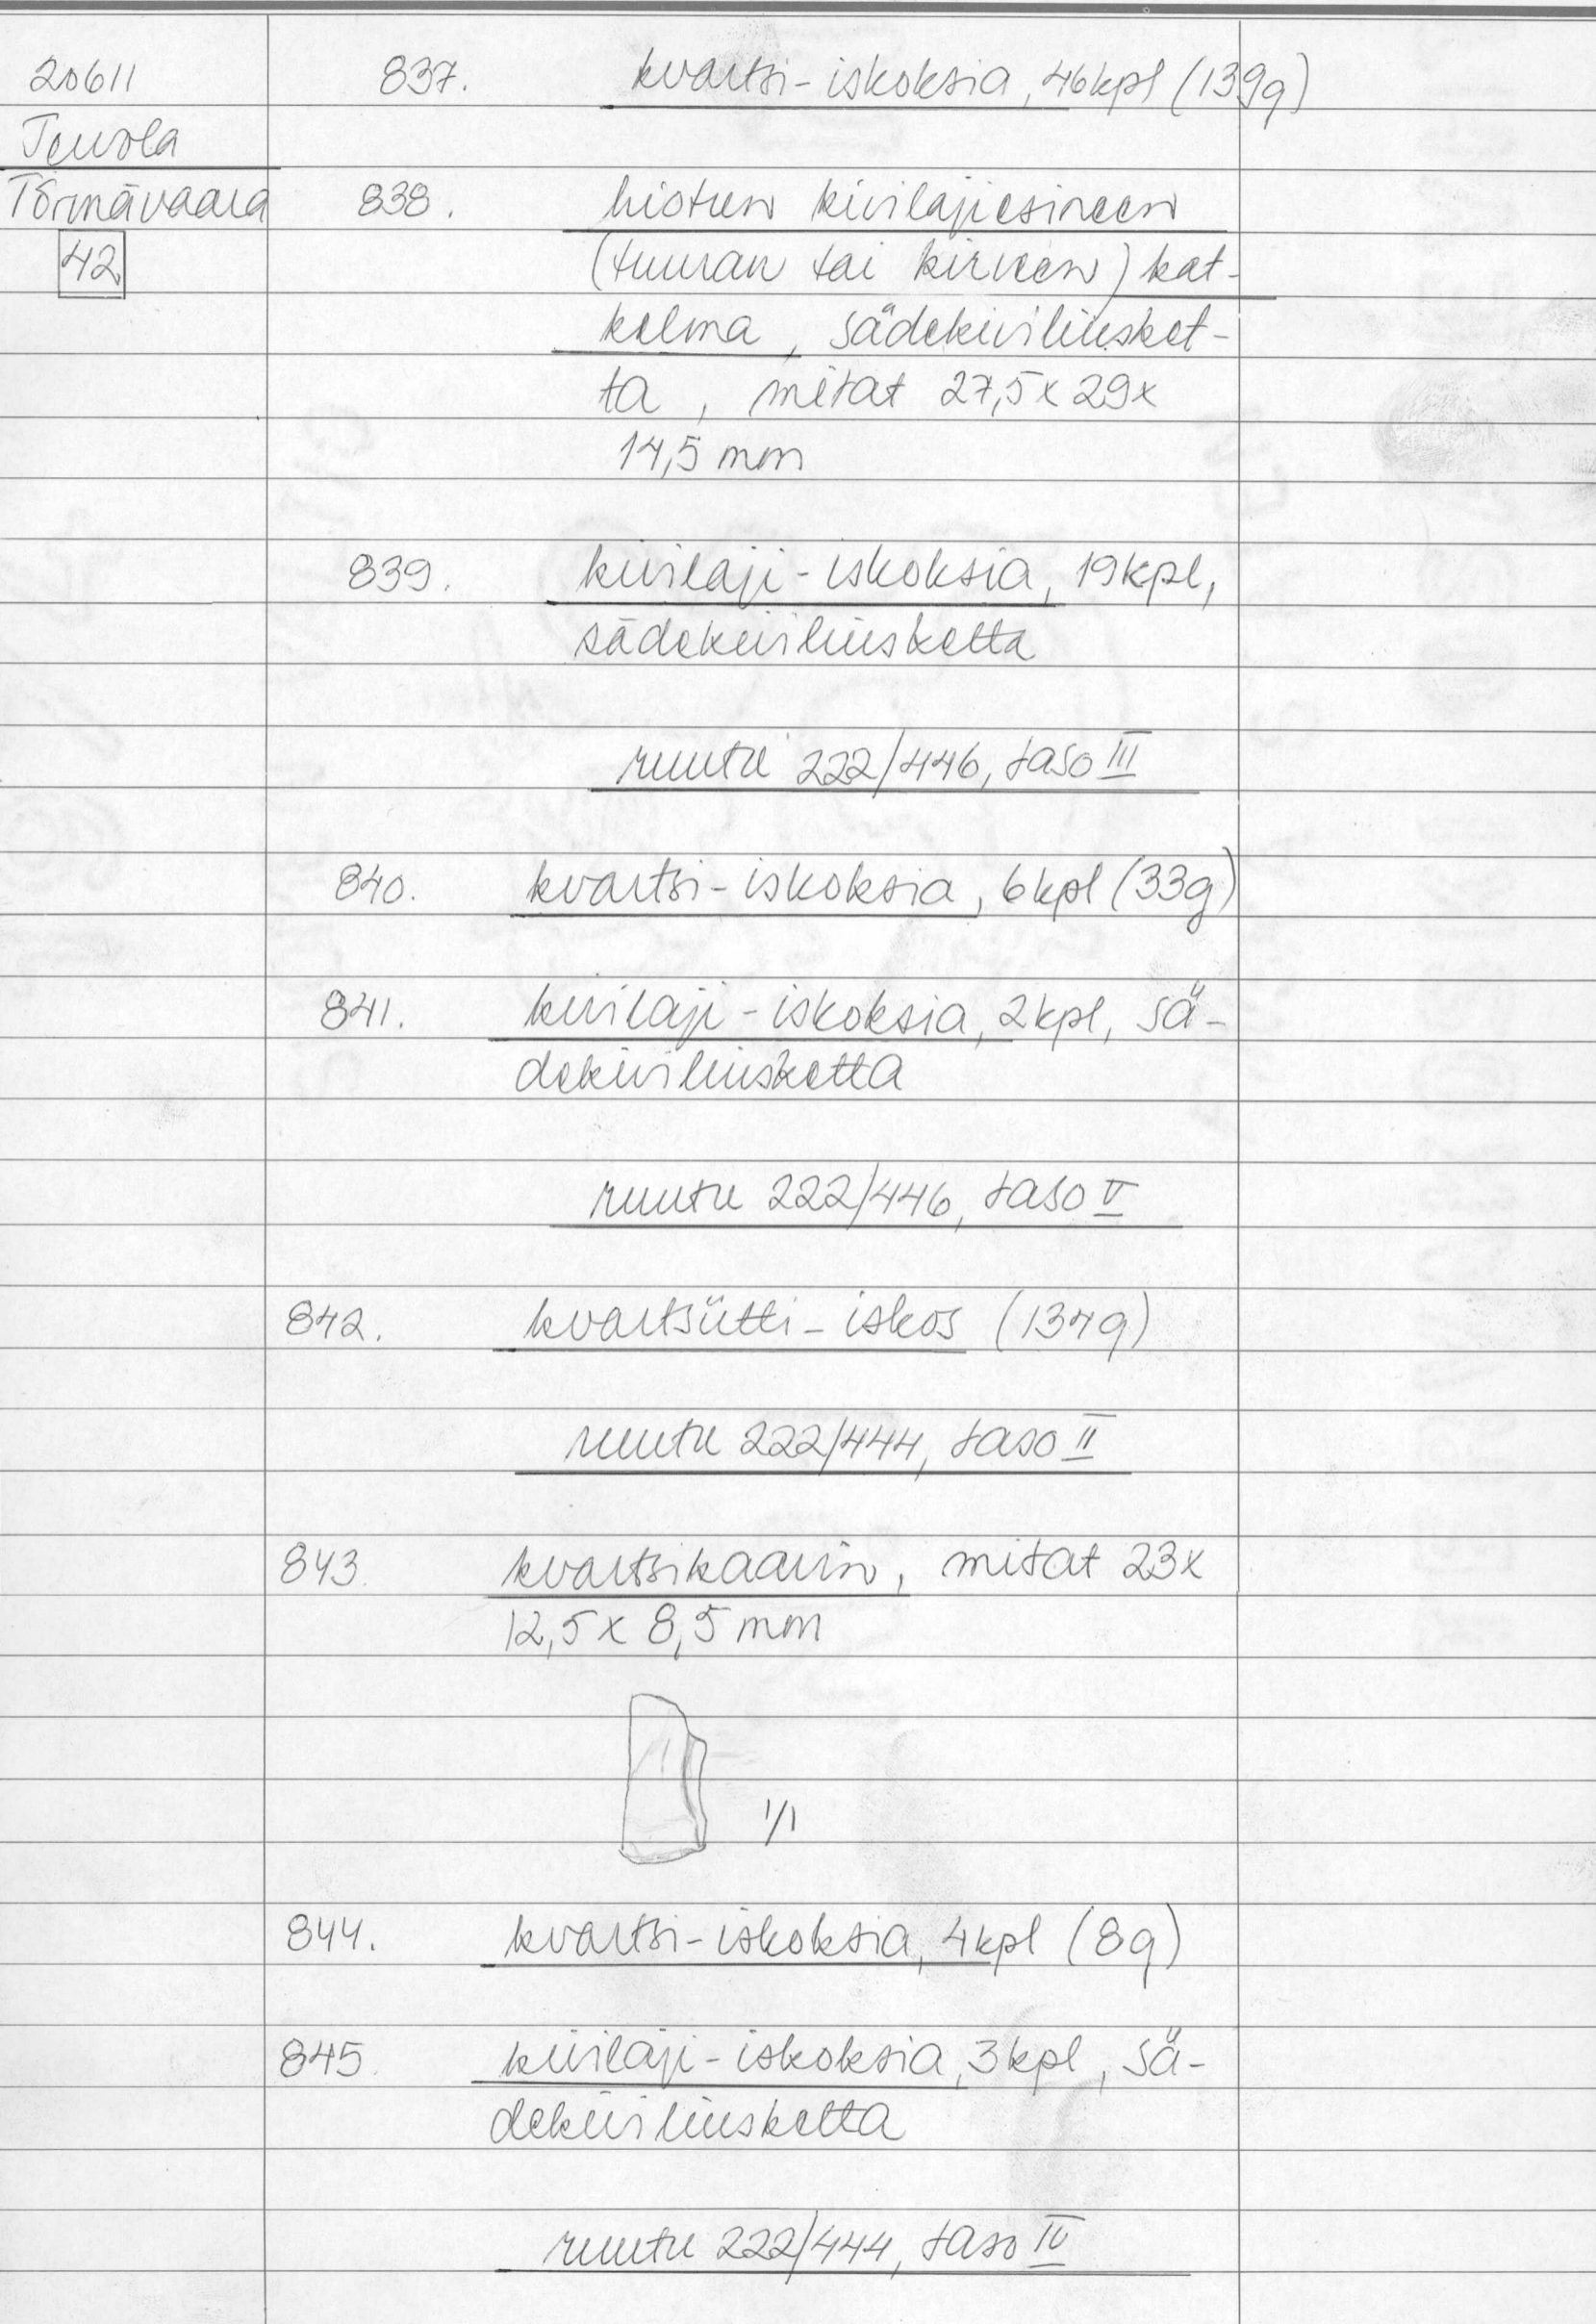 20611 837. kvartsi-iskoksia, 46 kpl (139g)
Tervola
Törmävaara 838. hiotun kivilajiesineen
42 (tuuran tai kirveen) kat-
kelma, sädekiviliusket-
ta, mitat 27,5 x 29 x
14,5 mm
839. kivilaji-iskoksia, 19 kpl,
sädekiviliusketta
ruutu 222/446, taso III
840. kvartsi-iskoksia, 6 kpl (33g)
841. kivilaji-iskoksia, 2 kpl, sä-
dekiviliusketta
ruutu 222/446, taso V
842. kvartsiitti-iskos (137g)
ruutu 222/444, taso II
843. kvartsikaavin, mitat 23 x
12,5 x 8,5 mm
1/1
844. kvartsi-iskoksia, 4 kpl (8g)
845. kivilaji-iskoksia, 3 kpl, sä-
dekiviliusketta
ruutu 222/444, taso IV